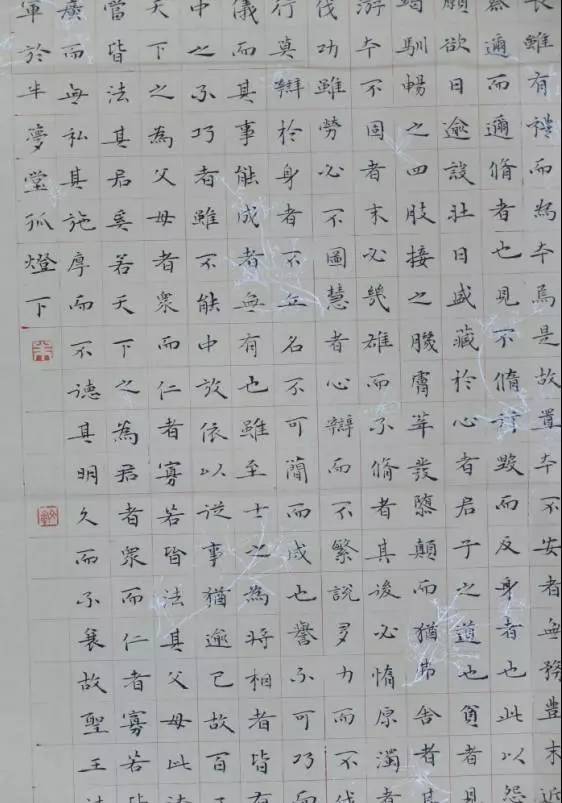 雖有禮而為本焉是故置本不安者無務豐末近
察邇而邇脩者也見不脩行毀而反身者也此以怨
願欲日逾設壯日盛藏於心者君子之道也貧者見
竭馴暢之四肢接之膚華髮隳顛而猶弗舍者其
游本不固者末必幾雄而不脩者其後必惰原濁者
伐功雖勞必不圖慧者心辯而不繁說多力而不伐
行莫辯於身者不立名不可簡而成也譽不可巧而
儀而其事能成者無有也雖至士之為將相者皆有
中之不巧者雖不能中放依以從事猶逾已故百工
天下之為父母者眾而仁者寡若皆法其父母此法
當皆法其君奚若天下之為君者眾而仁者寡若皆
廣而無私其施厚而不德其明久而不衰故聖王法
軍於半夢堂孤燈下